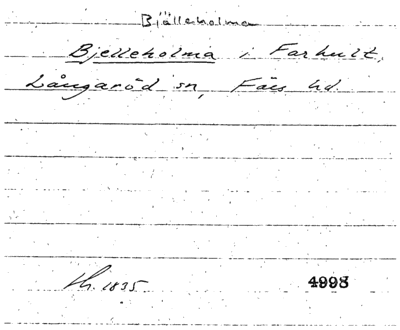 Bjälleholma
Bjelleholma i Farhult,
Långaröd sn, Färs hd.
1835.
4998